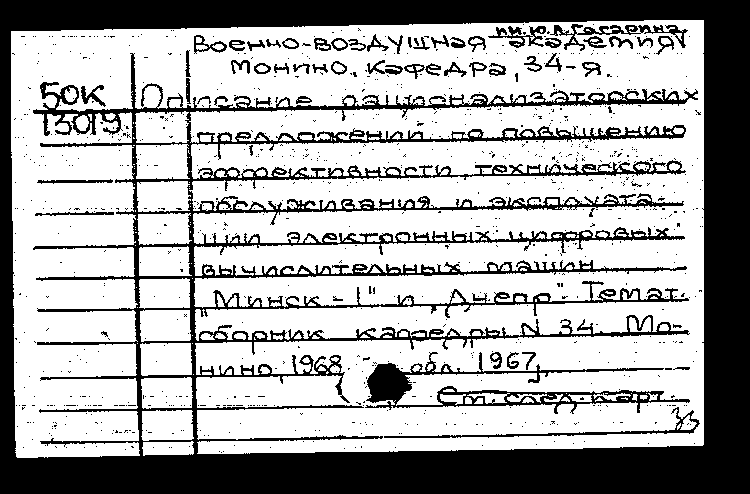 им. Ю.А. Гагарина
Военно-воздушная академия
Монино. Кафедра, 34-я.
50К Описание рационализаторских
13019 предложений по повышению
эффективности, технического
обслуживания и эксплуата-
ции электронных цифровых
вычислительных машин
„Минск-1" и „Днепр". Темат.
сборник кафедры N 34. Мо-
нино, 1968 обл. 1967,
См. след. карт.